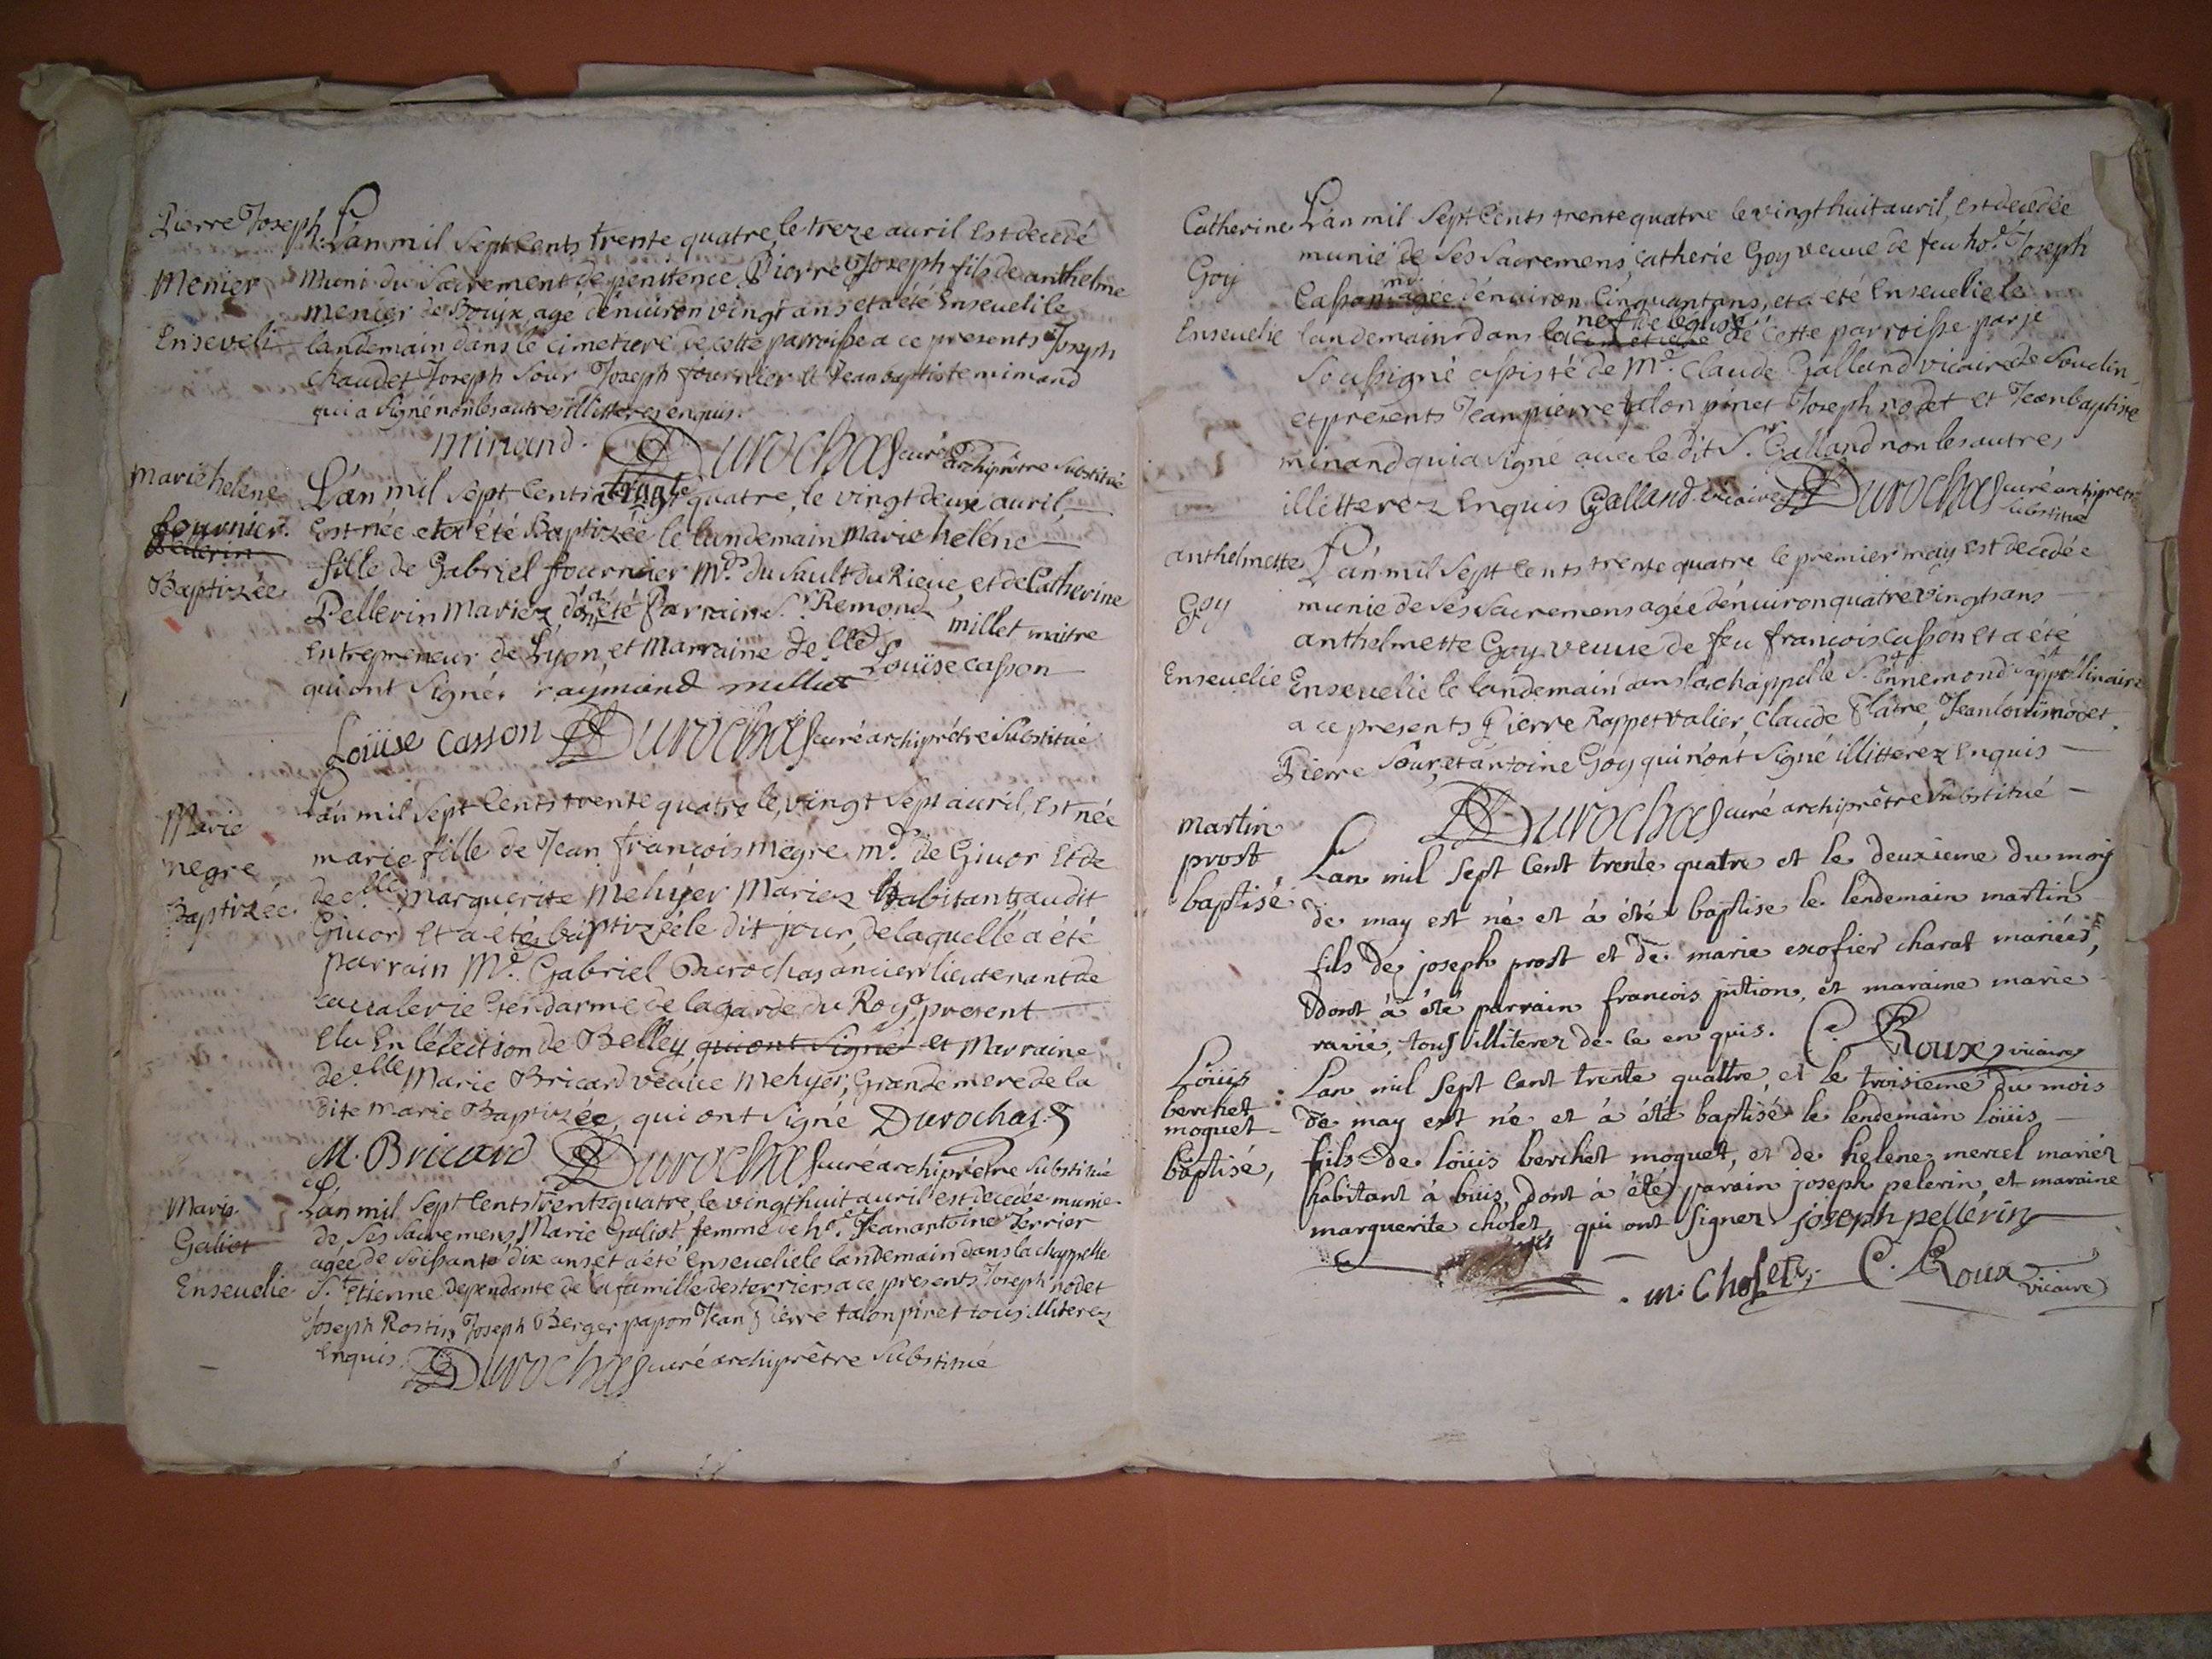 Pierre Joseph
Menier
Enseveli
L'an mil Sept Cents trente quatre, le treze auril Est decedé
muni du Sacrement de penitence Pierre Joseph fils de anthelme
menier de Bouix agé d'enuiron vingt ans et a été Enseueli le
landemain dans le cimetiere de cette parroisse a ce presents Joseph
chaudet Joseph Sour Joseph fournier et Jean baptiste minand
qui a signé non les autres illitterez enquis.
minand. Durochas curé Archiprêtre Substitué
Marie helene
fournier.
Pellerin
Baptizée
L'an mil Sept Cents trante quatre, le vingt deux auril,
Est née et a été Baptizée le landemain Marie hélène
fille de Gabriel fournier Md. du Sault du Rieue, et de Catherine
Pellerin Mariez, dont a été Parrain Sr. Remond millet maitre
Entrepreneur de Lyon, et Marraine de.lle Loüise Casson
qui ont Signé. raymond millet
Loüise Casson Durochas curé archiprêtre Substitué
Marie
negre
Baptizée
L'an mil Sept Cents trente quatre le, vingt Sept auril, Est née
marie fille de Jean François Megre md. de Giuor Et de
de.lle Marguerite Mehyer Mariez habitants audit
Giuor Et a été baptizée le dit jour, de laquelle a été
parrain Mr. Gabriel Durochas ancien lieutenant de
cavalerie Gendarme de la garde du Roy, a present
Elu En l'élection de Belley qui ont Signé et Marraine
de.elle Marie Bricard veuue Mehyer, Grande mere de la
dite Marie Baptizée, qui ont Signé Durochas
M. Bricard Durochas curé archiprêtre Substitué
Marie
Galiot
Enseuelie
L'an mil Sept Cents trente quatre, le vingt huit auril est decedée munie
de Ses Sacremens, Marie Galiot femme de ho.e Jean antoine Terrier
agée de Soissante dix ans et a été Enseuelie le landemain dans la chappelle
St. Etienne dependante de la famille des terriers a ce presents Joseph nodet
Joseph Rostin Joseph Berger papon Jean Pierre talon pinet tous illiterez
Enquis. Durochas curé archiprêtre Substitué
Catherine
Goy
Enseuelie
L'an mil Sept Cents trente quatre le vingt huit auril, est decedée
munie de Ses Sacremens Catherie Goy veuue de feu ho.e Joseph
Casson md. agée d'enuiron Cinquant ans, et a été Enseuelie le
landemain dans la cimetiere nef de leglise de cette parroisse par je
Soussigné assisté de Mr. Claude Galland vicaire de Souclin
et presents Jean pierre talon pinet Joseph nodet et Jean baptiste
minand qui a signé auec le dit Sr. Galland non les autres
illitterez Enquis Galland vicaire Durochas curé archiprêtre Substitué
anthelmette
Goy
Enseuelie
L'an mil Sept Cents trente quatre le premier may est decedée
munie de Ses Sacremens agée d'enuiron quatre vingts ans
anthelmette Goy veuue de feu françois Casson Et a été
Enseuelie le landemain dans la chappelle St. Ennemond St. appollinaire
a ce presents Pierre Rappet valier, Claude Flatre, Jean loüis nodet
Pierre Sour, et antoine Goy qui n'ont Signé illitterez Enquis
Durochas curé archiprêtre Substitué
martin
prost
baptisé
Lan mil Sept Cent trente quatre et le deuxieme du moy
de may est né et à été baptise le lendemain martin
fils de joseph prost et de marie exofier charat mariées,
dont à été parrain francois pition, et maraine marie
ravie, tous illiterez de le en quis. C. Roux vicaire
Loüis
berchet
moquet
baptisé,
Lan mil Sept Cent trente quattre, et le troisieme du mois
de may est né et à été baptisé le lendemain loüis
fils de loüis berchet moquet, et de helene mercel mariéz
habitant à buis, dont à été parain joseph pelerin, et maraine
marguerite cholet, qui ont signez joseph pellerin
m. Cholet C. Roux vicaire